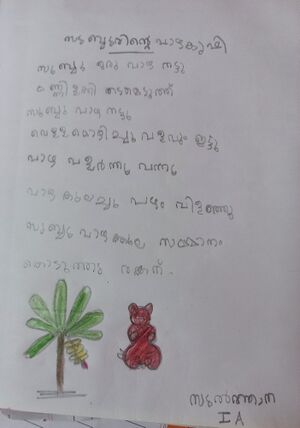 വാഴകൃഷി
സുബ്ബു ഒരു വാഴ നട്ടു
മണ്ണിളക്കി തടമെടുത്ത്
സുബ്ബു വാഴ നട്ടു
വെള്ളമൊഴിച്ചു വളവും ഇട്ടു
വാഴ വളർന്നു വന്നു
വാഴ കുലച്ചു പഴം വിളഞ്ഞു
സുബ്ബു വാഴക്കുല സമ്മാനം
കൊടുത്തു
I A